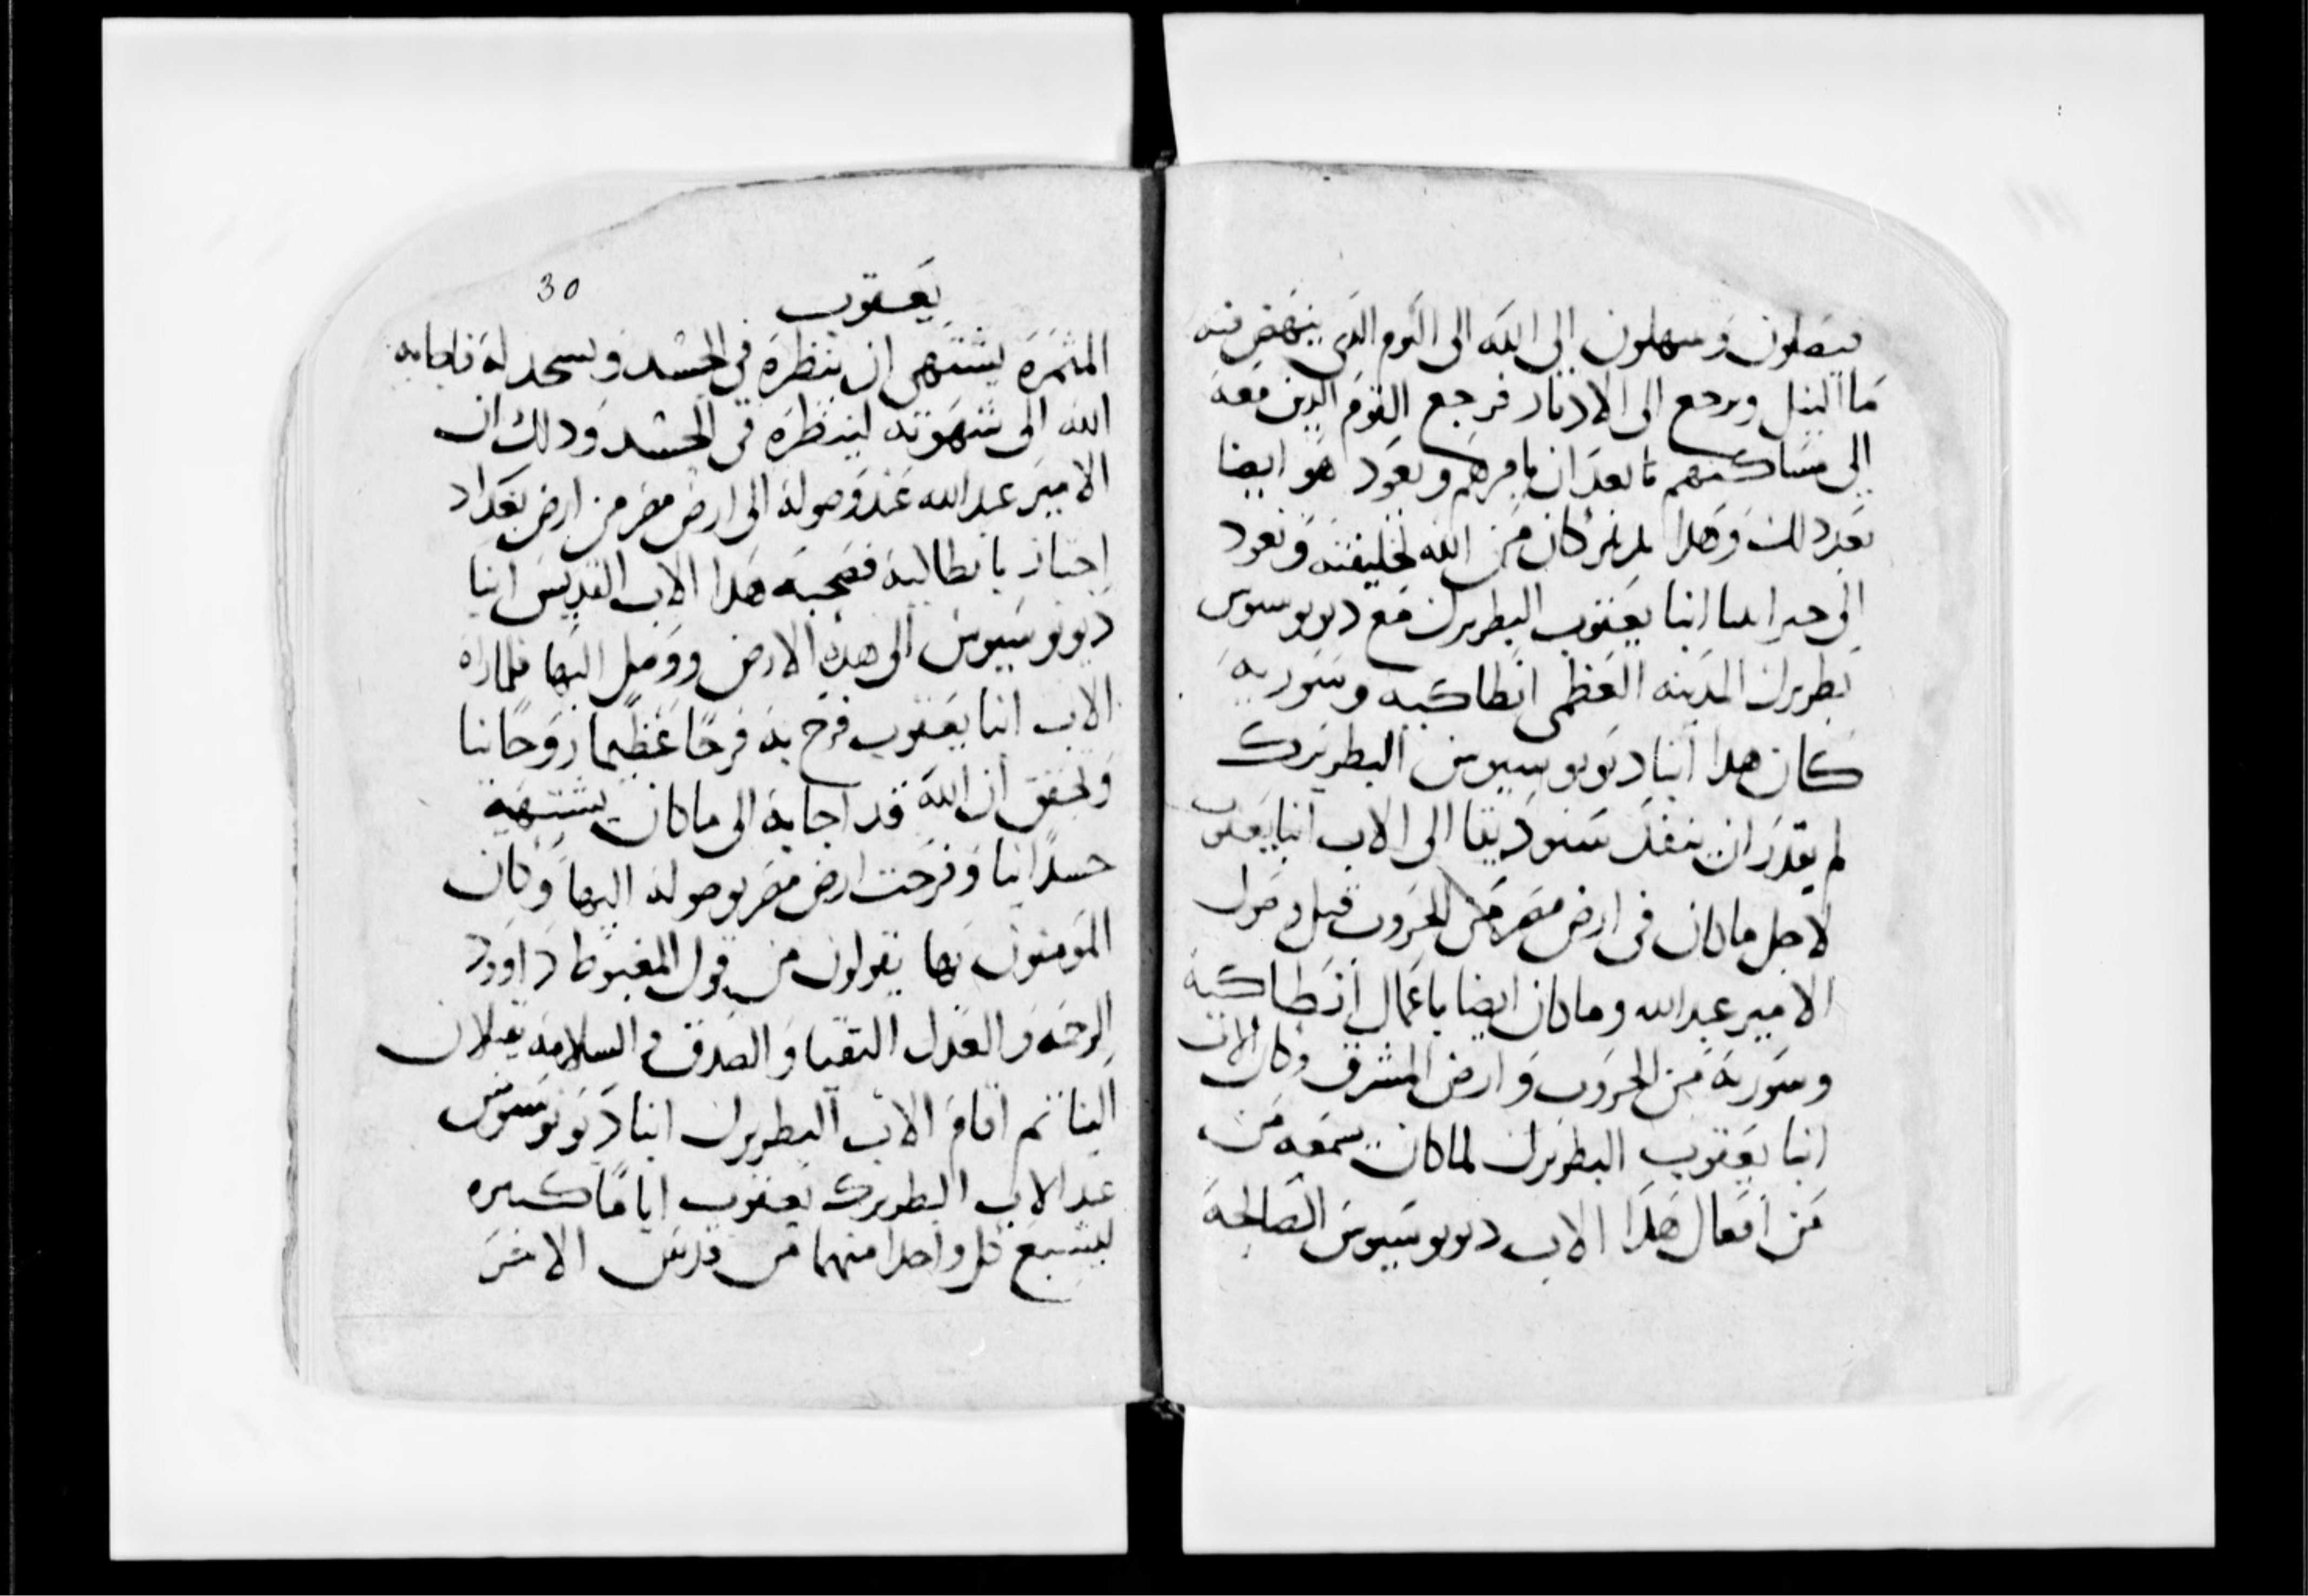 فيصلون ويبتهلون الى الله الى اليوم الدى ينهض فيه
ما النيل ويرجع الى الاديار فرجع القوم الدين معه
الى مساكنهم بعد ان يامرهم ويعود هو ايضا
بعد دلك وهدا تدبير كان من الله لخليقته ونعود
الى خبر ابينا انبا يعقوب البطريرك مع ديونوسيوس
بطريرك المدينه العظمى انطاكيه وسوريه
كان هدا انبا ديونوسيوس البطريرك
لم يقدر ان ينفد سنوديقا الى الاب انبا يعقوب
لاجل ماكان فى ارض مصر من الحروب قبل وصول
الامير عبدالله وماكان ايضا باعمال انطاكية
وسورية من الحروب و ارض المشرق وكان الاب
انبا يعقوب البطريرك لماكان يسمعه من
من افعال هدا الاب ديونوسيوس الصالحة
30
يعقوب
المثمرة يشتهى ان ينظره فى الجسد ويسجد له فاجابه
الله الى شهوته لينظره فى الجسد ودلك ان
الامير عبدالله عند وصوله الى ارض مصر من ارض بغداد
اجتاز بانطاكية فصحبه هدا الاب القديس انبا
ديونوسيوس الى هده الارض ووصل اليها فلما راه
الاب انبا يعقوب فرح به فرحًا عظيما روحانيا
وتحقق ان الله قد اجابه الى ماكان يشتهيه
جسدانيا وفرحت ارض مصر بوصوله اليها وكان
المومنون بها يقولون من قول المغبوط داوود
الرحمه والعدل التقيا والصدق والسلامه يقبلان
الينا تم اقام الاب البطريرك انبا ديونوسيوس
عند الاب البطريرك يعقوب ايامًا كتيره
ليشبع كل واحد منهما من قدس الاخر